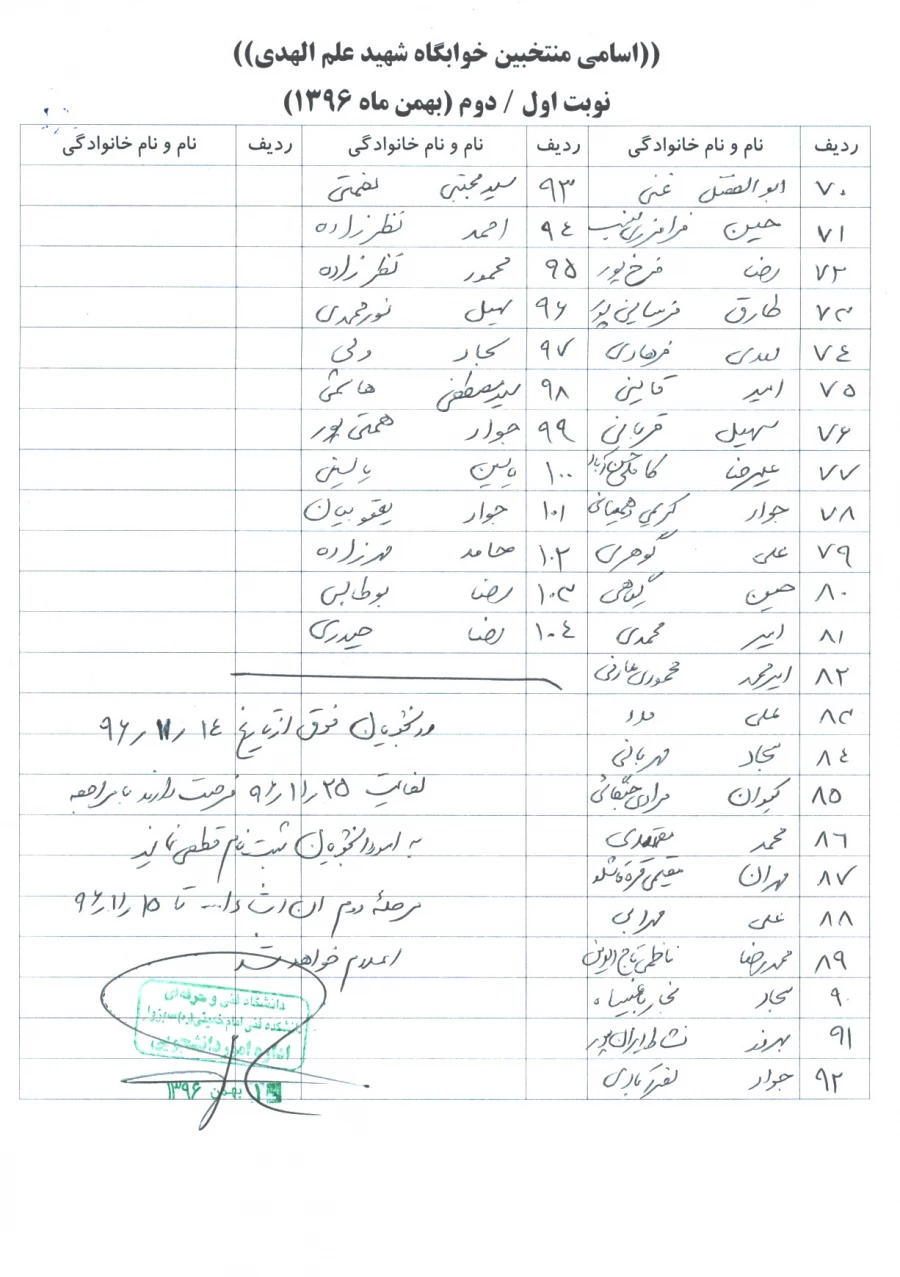 ((اسامی منتخبین خوابگاه شهید علم الهدی))
نوبت اول / دوم (بهمن ماه ۱۳۹۶)
ردیف نام و نام خانوادگی ردیف نام و نام خانوادگی ردیف نام و نام خانوادگی
۷۰ ابوالفضل غنی ۹۳ سید مجتبی نعمتی
۷۱ حسین ۹۴ احمد نظرزاده
۷۲ رضا فرخ پور ۹۵ محمود نظرزاده
۷۳ طارق فرسایی پور ۹۶ سهیل نورمحمدی
۷۴ مهدی فرهادی ۹۷ سجاد ولی
۷۵ امید قائنی ۹۸ سید مصطفی هاشمی
۷۶ سهیل قربانی ۹۹ جواد همتی پور
۷۷ علیرضا ۱۰۰ یاسین یاسینی
۷۸ جواد کریمی ۱۰۱ جواد یعقوبیان
۷۹ علی گوهری ۱۰۲ حامد مهرزاده
۸۰ حسین گیاهی ۱۰۳ رضا
۸۱ امیر محمدی ۱۰۴ رضا حیدری
۸۲ امیرمحمد محمودی
۸۳ علی مدد
۸۴ سجاد مهربانی
۸۵ کیوان مرادی
۸۶ محمد مقصدی
۸۷ مهران مقیمی
۸۸ علی مهرابی
۸۹ محمدرضا ناظمی
۹۰ سجاد نجار
۹۱ بهروز نشاط ایران پور
۹۲ جواد
دانشجویان فوق از تاریخ ۱۴ / ۱۱ / ۹۶
لغایت ۲۵ / ۱۱ / ۹۶ فرصت دارند با مراجعه
به امور دانشجویان ثبت نام قطعی نمایند
مرحله دوم ان شاءا... تا ۱۵ / ۱۱ / ۹۶
اعلام خواهد شد
دانشگاه فنی و حرفه ای
دانشکده فنی امام خمینی (ره) سبزوار
اداره امور دانشجویی
بهمن ۱۳۹۶